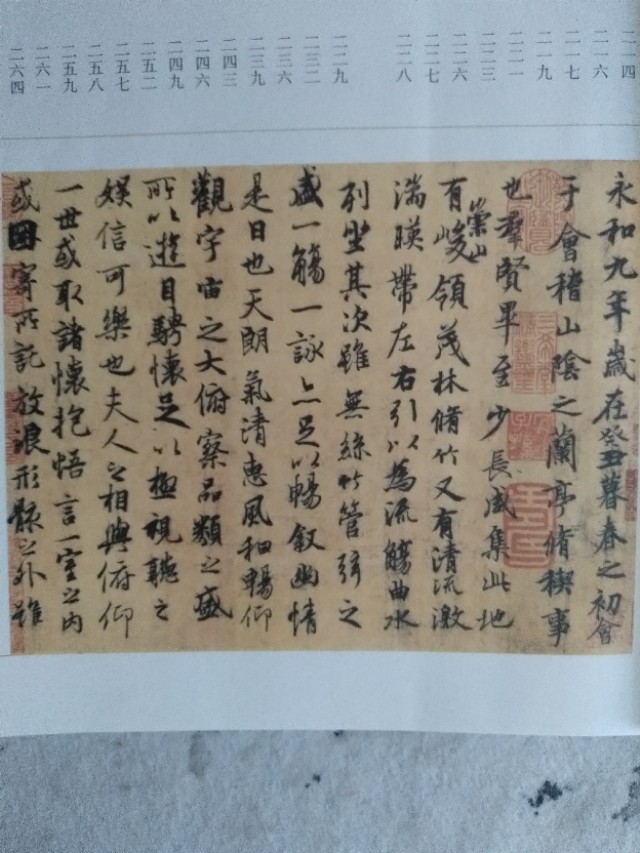 二一四
二一六
二一七
二一九
二二一
二二三
二二六
二二七
二二八
二二九
二三二
二三六
二三九
二四三
二四六
二四九
二五二
二五七
二五八
二五九
二六一
二六四
永和九年歲在癸丑暮春之初會
于會稽山陰之蘭亭脩稧事
也羣賢畢至少長咸集此地
有崇山峻領茂林脩竹又有清流激
湍暎帶左右引以為流觴曲水
列坐其次雖無絲竹管弦之
盛一觴一詠亦足以暢叙幽情
是日也天朗氣清惠風和暢仰
觀宇宙之大俯察品類之盛
所以遊目騁懷足以極視聽之
娛信可樂也夫人之相與俯仰
一世或取諸懷抱悟言一室之內
或因寄所託放浪形骸之外雖